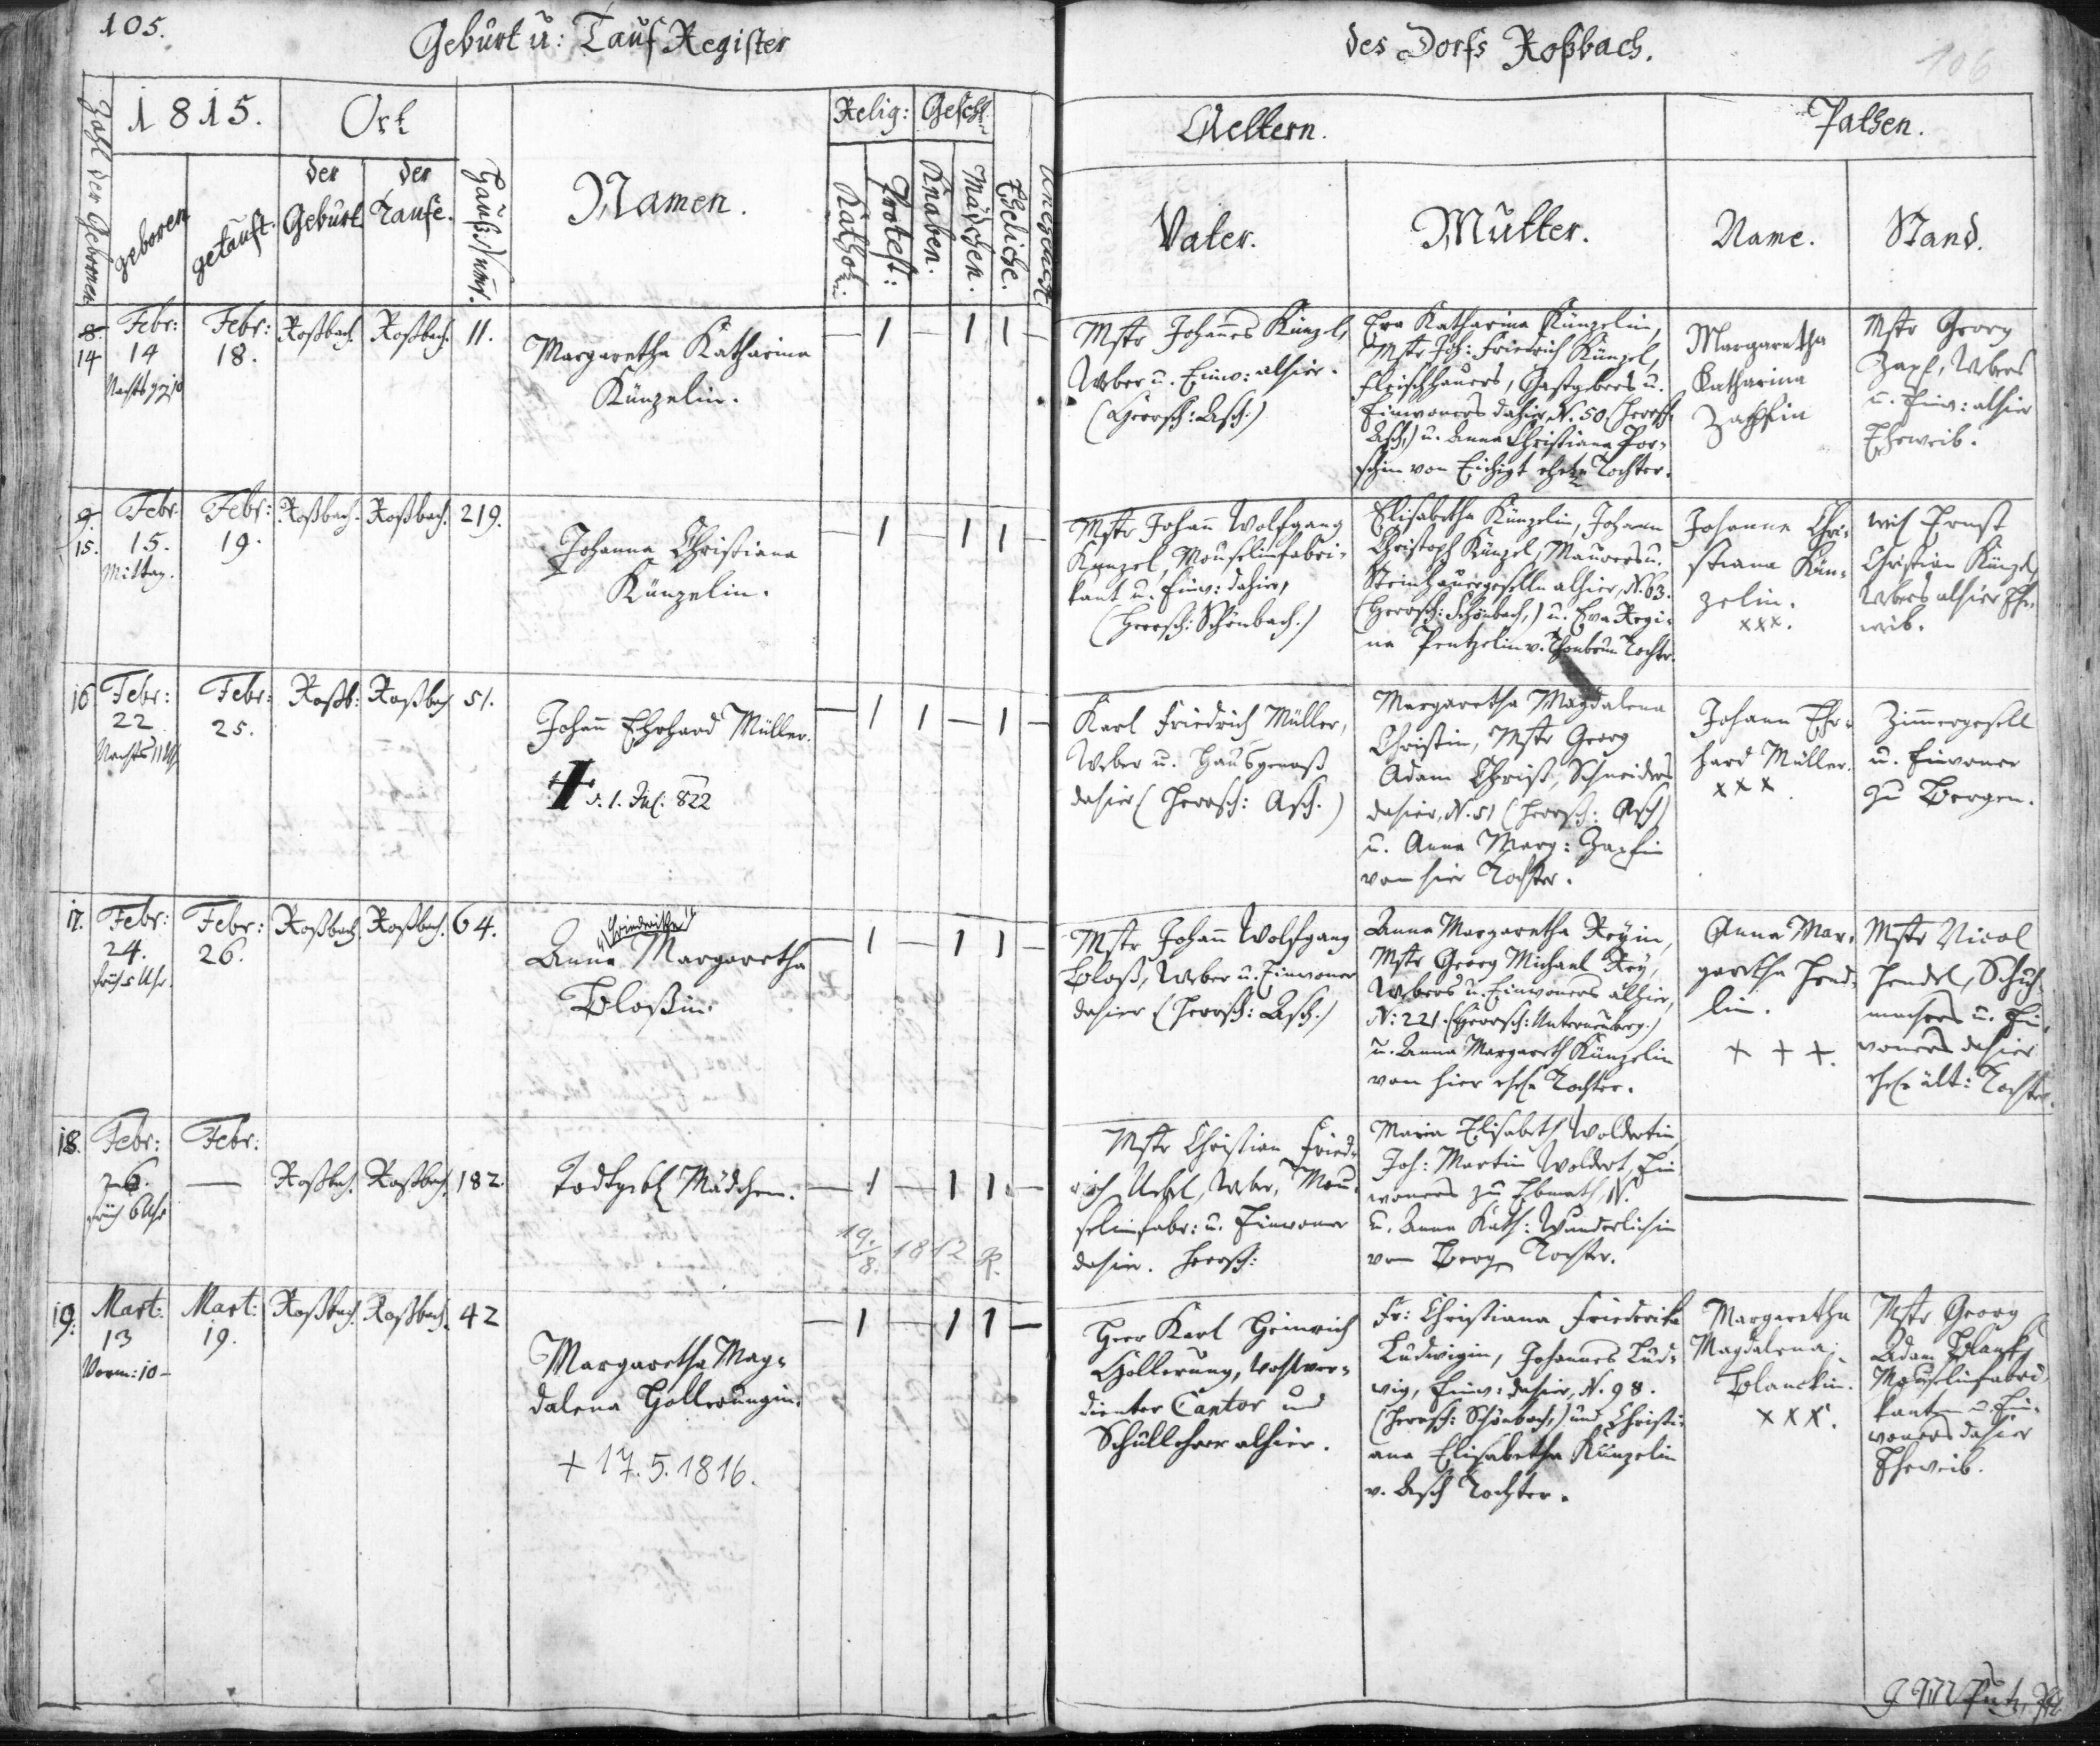 105.
Geburt u: Tauf Register
des Dorfs Roßbach.
106
Zahl der Gebornen
1815.
Ort
Relig:
Geschl.
Aeltern.
Pathen.
geboren
getauft.
der Geburt
der Taufe.
Hauß Num.
Namen.
Kathol:
Protest:
Knaben.
Mädchen.
Eheliche.
Vater.
Mutter.
Name.
Stand.
8.
14
Febr:
14
Nachts
Febr:
18.
Roßbach.
Roßbach.
11.
Margaretha Katharina
Künzelin.
— 1 — 1 1
Mstr Johannes Künzel,
Weber u. Einw: alhier.
(Herrsch: Asch.)
Eva Katharina Künzelin,
Mstr Joh: Friedrich Künzel,
Fleischhauers, Gastgebers u.
Einwoners dahier, N. 50 (Herrsch:
Asch,) u. Anna Christiana
von Eichigt ehel. Tochter.
Margaretha
Katharina
Zapfin
Mstr Georg
Zapf, Webers
u. Einw: alhier
Eheweib.
9.
15.
Febr.
15.
Mittag.
Febr:
19.
Roßbach.
Roßbach.
219.
Johanna Christiana
Künzelin.
— 1 — 1 1 —
Mstr Johann Wolfgang
Künzel, Mouselinfabri-
kant u. Einw: dahier,
(Herrsch: Schönbach.)
Elisabetha Künzelin, Johann
Christoph Künzel, Maurers u.
Steinhauergeselln alhier, N. 63.
(Herrsch: Schönbach,) u. Eva Regi-
na v. Thonbrun Tochter.
Johanna Chri-
stiana Kün-
zelin.
xxx.
Ernst
Christian Künzel,
Webers alhier Ehe-
weib.
16
Febr:
22
Nachts 11 Uhr
Febr:
25.
Roßb:
Roßbach
51.
Johann Ehrhard Müller.
† d. 1. Jul. 822
— 1 1 — 1 —
Karl Friedrich Müller,
Weber u. Hausgenoß
dahier (Herrsch: Asch.)
Margaretha Magdalena
Christin, Mstr Georg
Adam Christ, Schneiders
dahier, N. 51 (Herrsch: Asch)
u. Anna Marg: Zapfin
von hier Tochter.
Johann Ehr-
hard Müller.
xxx
Zimmergesell
u. Einwoner
zu Bergen.
17.
Febr:
24.
früh 5 Uhr.
Febr:
26.
Roßbach.
Roßbach.
64.
"Friederika"
Anna Margaretha
Bloßin.
— 1 — 1 1 —
Mstr Johann Wolfgang
Bloß, Weber u. Einwoner
dahier (Herrsch: Asch.)
Anna Margaretha Reÿin,
Mstr Georg Michael Reÿ,
Webers u. Einwoners alhier,
N: 221. (Herrsch: Unterneuberg.)
u. Anna Margareth Künzelin
von hier ehel. Tochter.
Anna Mar-
garetha Hend-
lin.
+ + +.
Mstr Nicol
Hendel, Schuh-
machers u. Ein-
woners dahier
ehel. ält: Tochter.
18.
Febr:
26.
früh 6 Uhr
Febr:
—
Roßbach.
Roßbach.
182.
Todtgeb. Mädchen.
— 1 — 1 1. —
19./8. 1812 R.
Mstr Christian Fried-
rich, Weber, Mou-
selinfabr: u. Einwoner
dahier. Herrsch:
Maria Elisabeth Woldertin
Joh: Martin Woldert, Ein-
woners zu Ebmath, N.
u. Anna Kath: Wunderlichin
von Berg Tochter.
19.
Mart:
13
Vorm: 10 –
Mart:
19.
Roßbach.
Roßbach.
42
Margaretha Mag-
dalena Hollerungin.
+ 17. 5. 1816.
— 1 — 1 1 —
Herr Karl Heinrich
Hollerung, wohlver-
dienter Cantor und
Schullehrer alhier.
Fr: Christiana Friederika
Ludwigin, Johannes Lud-
wig, Einw: dahier, N. 98.
(Herrsch: Schönbach,) und Christi-
ana Elisabetha Künzelin
v. Asch Tochter.
Margaretha
Magdalena
Blanckin.
xxx.
Mstr Georg
Adam Blank,
Mouselinfabri-
kanten u. Ein-
woners dahier
Eheweib.